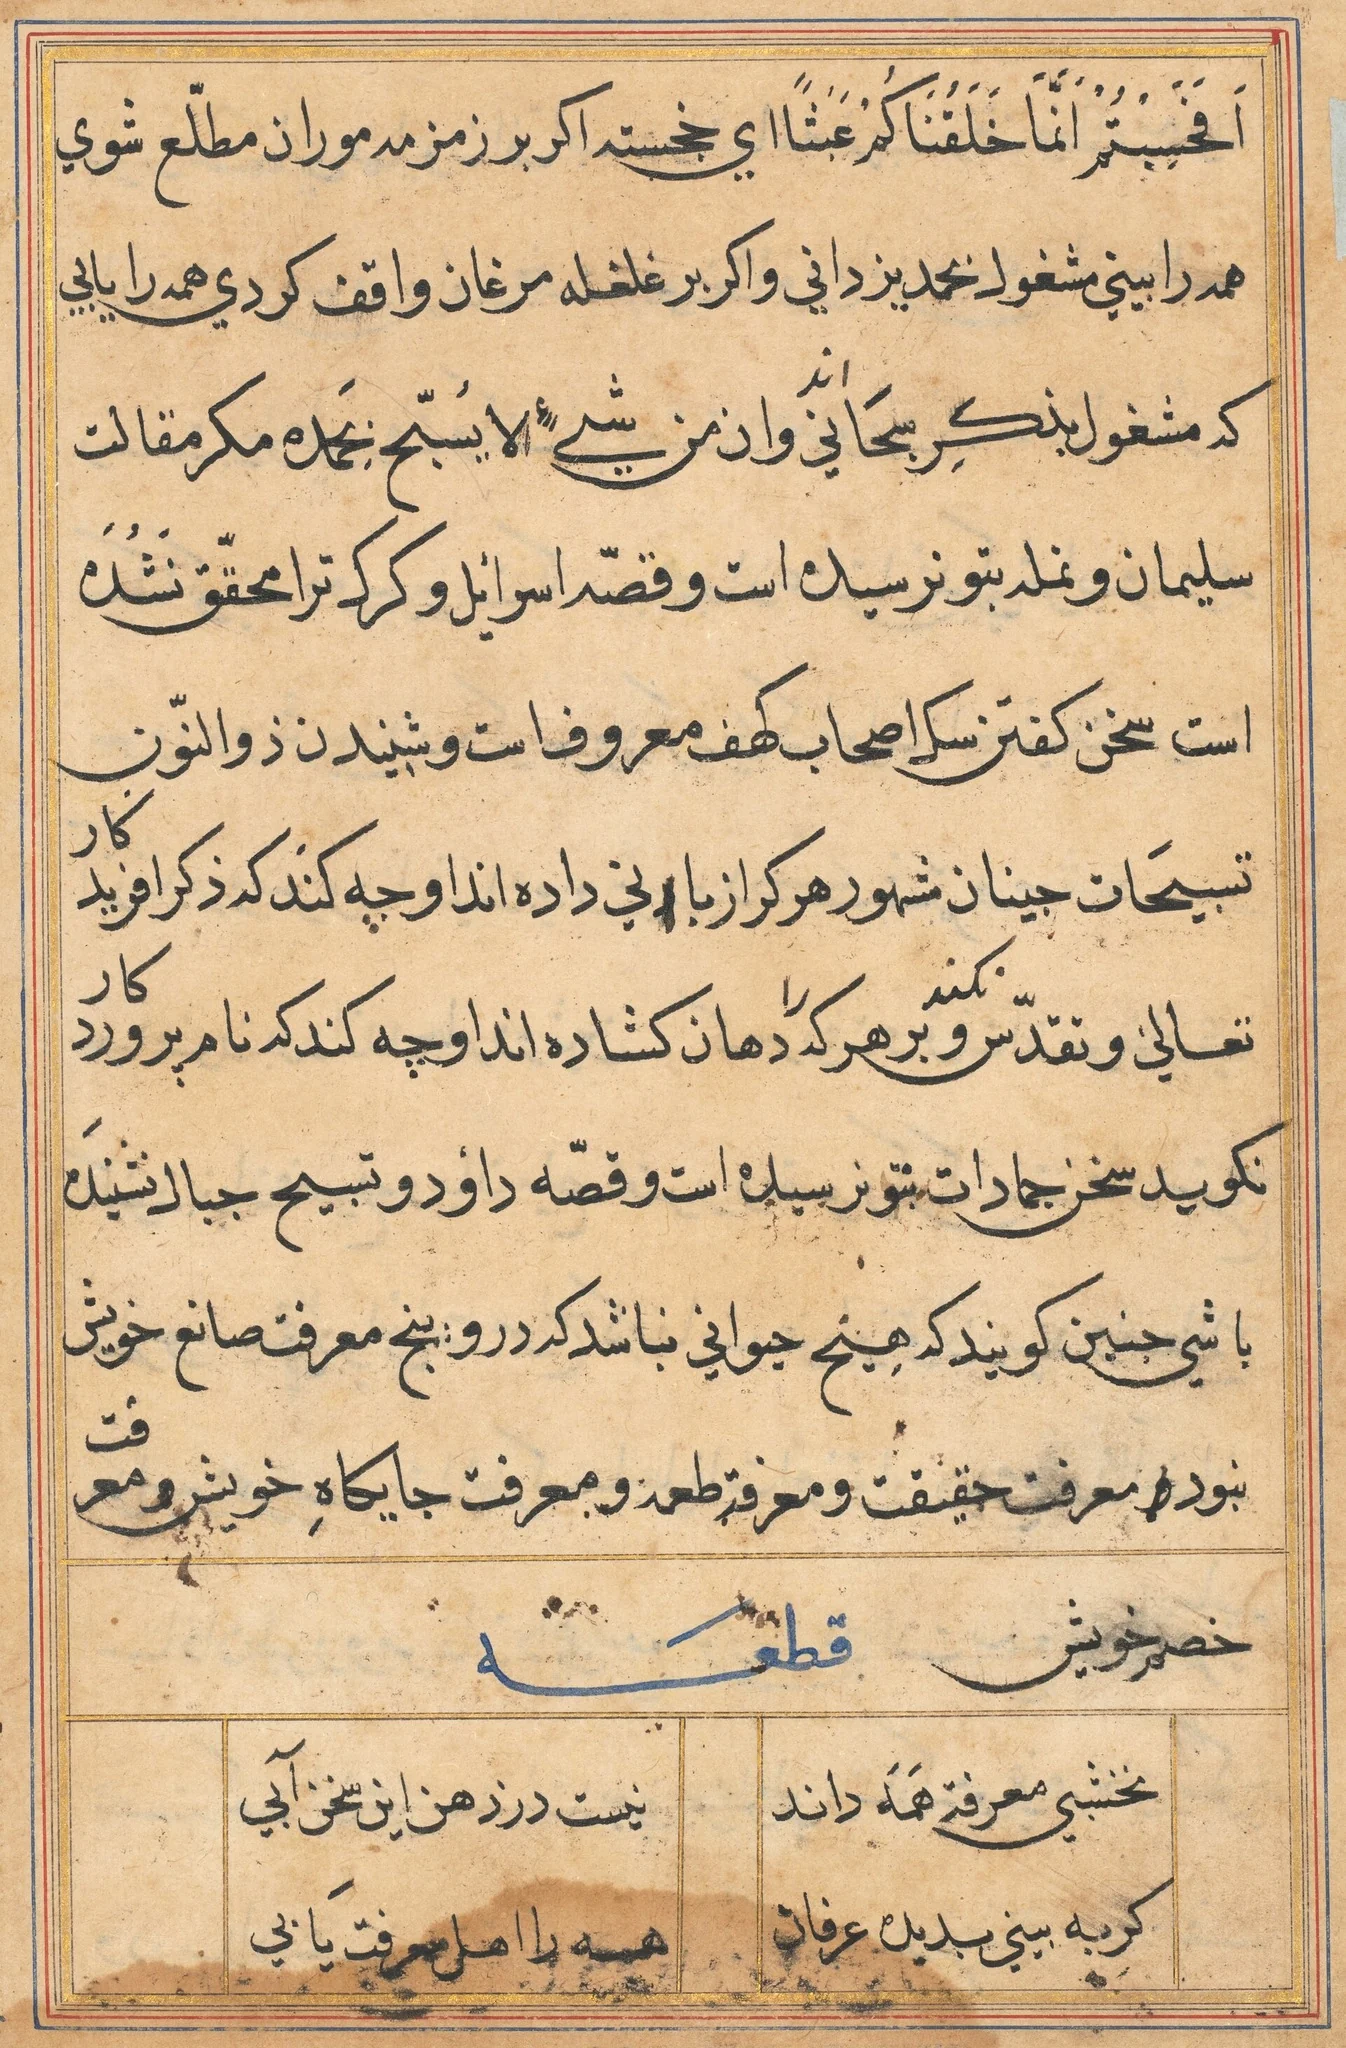 اَفَحَسِبْتُمْ اَنَّمَا خَلَقْنَاكُمْ عَبَثًا اي خجسته اكر بر زمزمه موران مطلّع شوي
همه را بيني مشغول بحمد يزداني و اكر بر غلغله مرغان واقف كردي همه را يابي
كه مشغول بذكرِ سبحاني اند وان من شيءٍ الا يسبّح بحَمده مكر مقالت
سليمان و نمله بتو نرسيده است و قصّه اسرائيل و كرك ترا محقّق نَشُدَه
است سخن كفتن سك اصحاب كهف معروف است و شنيدن ذوالنّون
تسبيحَات حينان مشهور هر كرا زباني داده اند او چه كند كه ذكر افريدكار
تعالىٰ و تقدّس نكند و بر هر كه را دهان كشاده اند او چه كند كه نام پروردكار
نكويد سخن جمادات بتو نرسيده است و قصّه داؤد و تسبيح جبال نشنيَده
باشي جنين كويند كه هيچ حيواني نباشد كه درو پنج معرفت صانع خويش
نبود معرفت حقيقت و معرفة طعمه و معرفت جايكاهِ خويش و معرفت
خصم خويش قطعه
نخشبي معرفة همَه داند نيست در ذهن اين سخن آبي
كر به بيني بديده عرفان همه را اهل معرفت يَابي